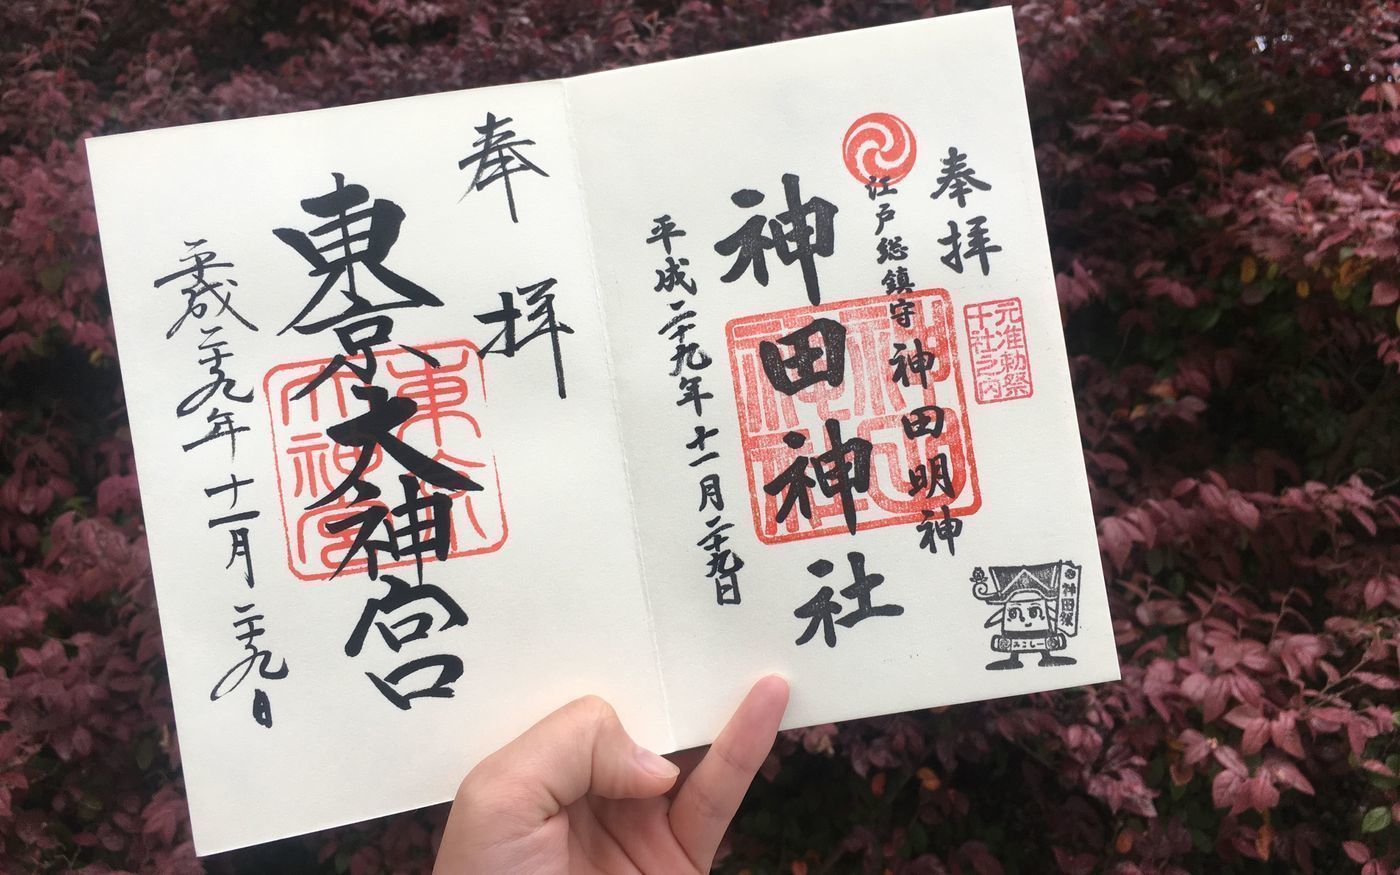 奉拝
元准勅祭
十社之内
江戸総鎮守 神田明神
神田神社
平成二十九年十一月二十九日
神田祭
みこしー
奉拝
東京大神宮
平成二十九年十一月二十九日
東京
大神宮